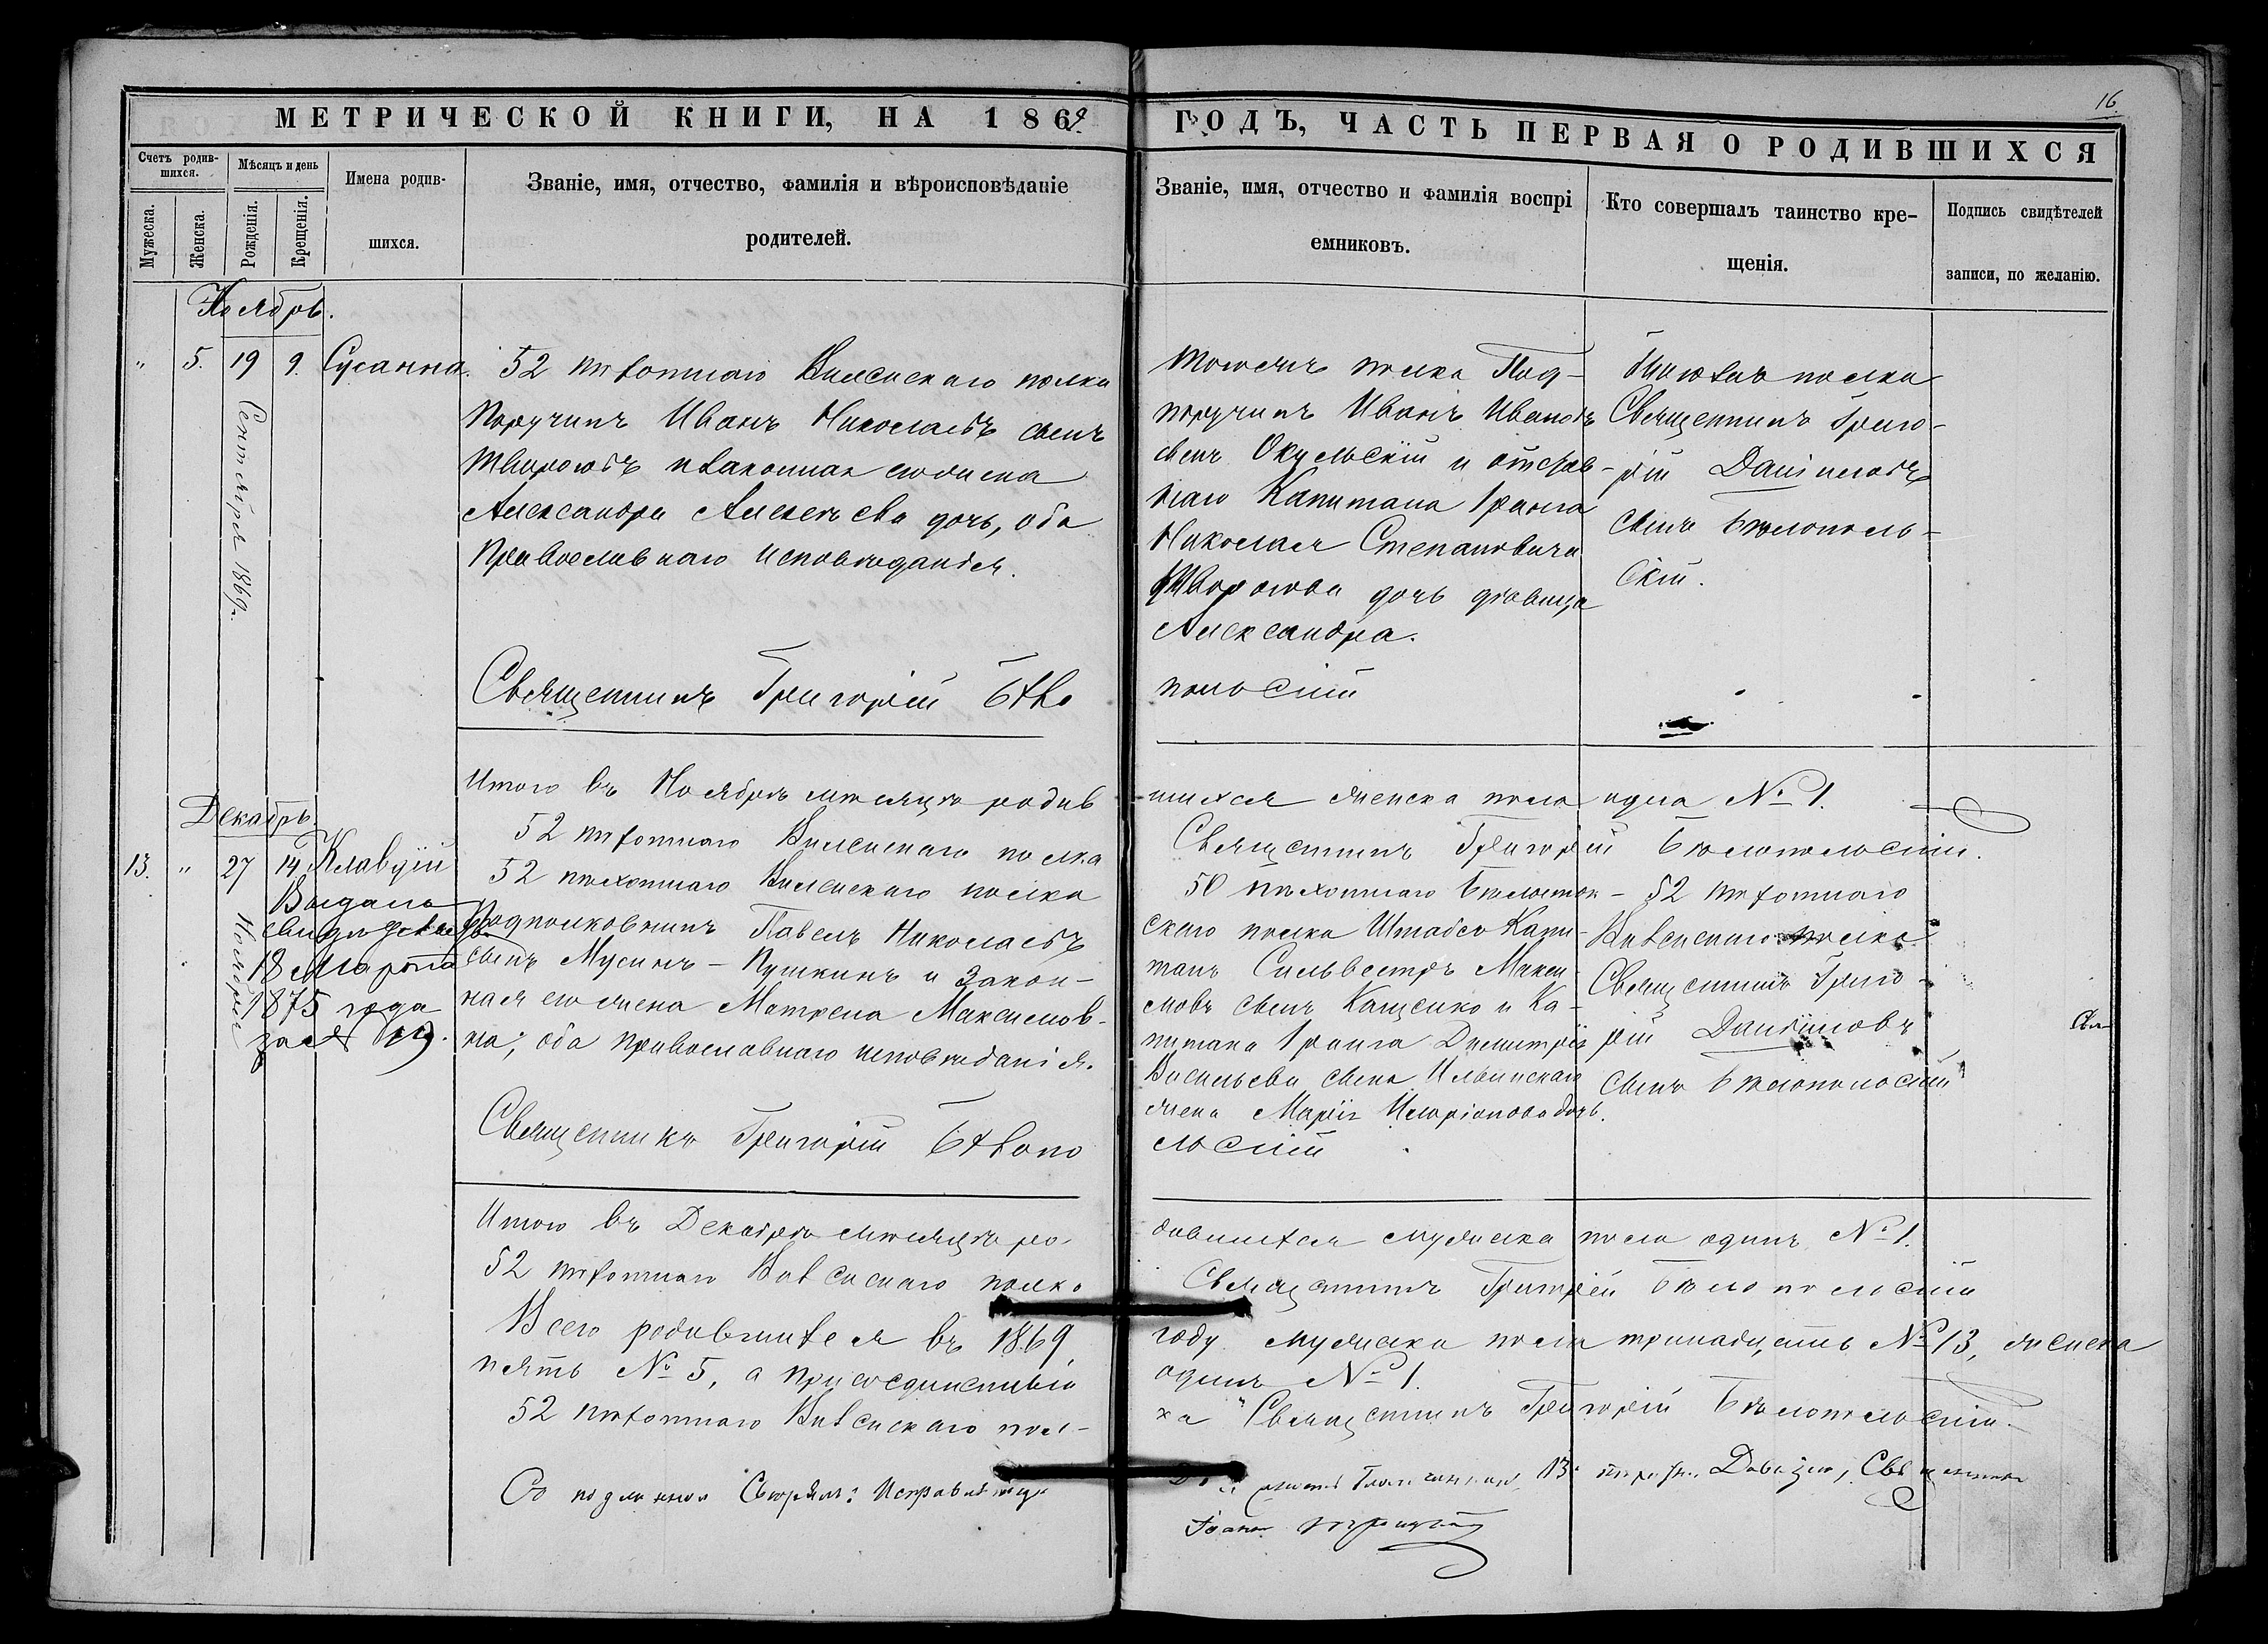 16
МЕТРИЧЕСКОЙ КНИГИ, НА 1869
ГОДЪ, ЧАСТЬ ПЕРВАЯ О РОДИВШИХСЯ
Счетъ родив-
шихся.
Мужеска.
Женска.
Мѣсяцъ и день
Рожденія.
Крещенія.
Имена родив-
шихся.
Званіе, имя, отчество, фамилія и вѣроисповѣданіе
родителей.
Званіе, имя, отчество и фамилія воспрі
емниковъ.
Кто совершалъ таинство кре-
щенія.
Подпись свидѣтелей
записи, по желанію.
Ноябрь.
" 5. 19 9. Сусанна.
Сентября 1869г.
52 пѣхотнаго Виленскаго полка
Поручикъ Иванъ Николаевъ сынъ
Творо
законная его жена
Александра Алексѣева дочь, оба
Православнаго исповѣданія.
Священникъ Григорій Бѣло
Тогожъ полка Под-
поручикъ Иванъ Ивановъ
сынъ Окульскій и отстав-
наго Капитана 1 ранга
Николая Степановича
дочь дѣвица
Александра.
польскій
полка
Священникъ Григо-
рій Даніиловъ
сынъ Бѣлополь-
скій.
Итого въ Ноябрѣ мѣсяцѣ родив
-шихся женска пола одна № 1.
52 пѣхотнаго Виленскаго полка
Священникъ Григорій Бѣлопольскій.
Декабрь.
13. " 27 14 Клавдій
Ноября
Выдано
свидѣтельство
18 Марта
1875 года
за № 19.
52 пѣхотнаго Виленскаго полка
Подполковникъ Павелъ Николаевъ
сынъ Мусинъ-Пушкинъ и закон-
ная его жена Матрена Максимов-
на; оба православнаго исповѣданія.
Священникъ Григорій Бѣлопо
50 пѣхотнаго Бѣлосток-
скаго полка Штабсъ Капи-
танъ Сильвестръ Макси-
мовъ сынъ Кащенко и Ка-
питана 1 ранга Димитрія
Васильева сына Ильинскаго
жена Марія дочь.
льскій
52 пѣхотнаго
Виленскаго полка
Священникъ Григо-
рій Даніиловъ
сынъ Бѣлопольскій
Итого въ Декабрѣ мѣсяцѣ ро-
дившихся мужеска пола одинъ № 1.
52 пѣхотнаго Виленскаго полка
Священникъ Григорій Бѣлопольскій
Всего родившихся въ 1869
году мужеска пола тринадцать № 13, женска
пять № 5, а присоединенный
одинъ № 1.
52 пѣхотнаго Виленскаго пол-
ка Священникъ Григорій Бѣлопольскій.
Съ подлиннымъ свѣрялъ: Исправляющій
Благочиннаго 13 пѣхотн. Дивизіи, Священникъ
Іоаннъ